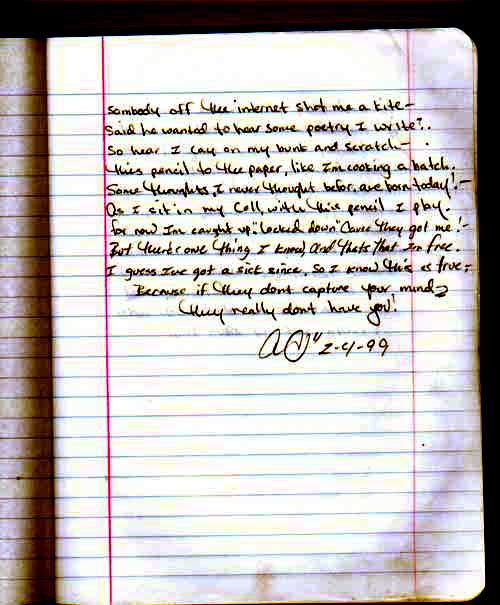 Sombody off the internet shot me a kite-
Said he wanted to hear some poetry I write!..
So hear I lay on my bunk and scratch-
this pencil to the paper, like Im cooking a batch.
Some thoughts, I never thought befor, are born today!-
As I sit in my Cell, with this pencil I play.
for now Im caught up "locked down" Cause they got me!-
But there's one thing I know, and thats that Im free.
I guess Ive got a sick since, So I know this is true-
Because if they dont capture your mind-
they really dont have you!
2-4-99